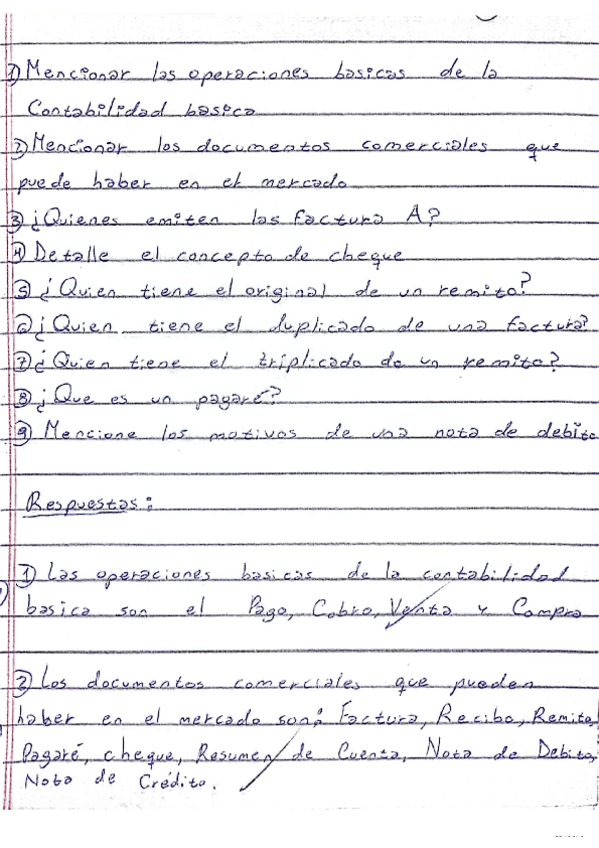 1) Mencionar las operaciones basicas de la
Contabilidad basica
2) Mencionar los documentos comerciales que
puede haber en el mercado
3) ¿Quienes emiten las factura A?
4) Detalle el concepto de cheque
5) ¿Quien tiene el original de un remito?
6) ¿Quien tiene el duplicado de una factura?
7) ¿Quien tiene el triplicado de un remito?
8) ¿Que es un pagaré?
9) Mencione los motivos de una nota de debito
Respuestas:
1) Las operaciones basicas de la contabilidad
basica son el Pago, Cobro, Venta y Compra
2) Los documentos comerciales que pueden
haber en el mercado son: Factura, Recibo, Remito,
Pagaré, cheque, Resumen de Cuenta, Nota de Debito,
Nota de Crédito.